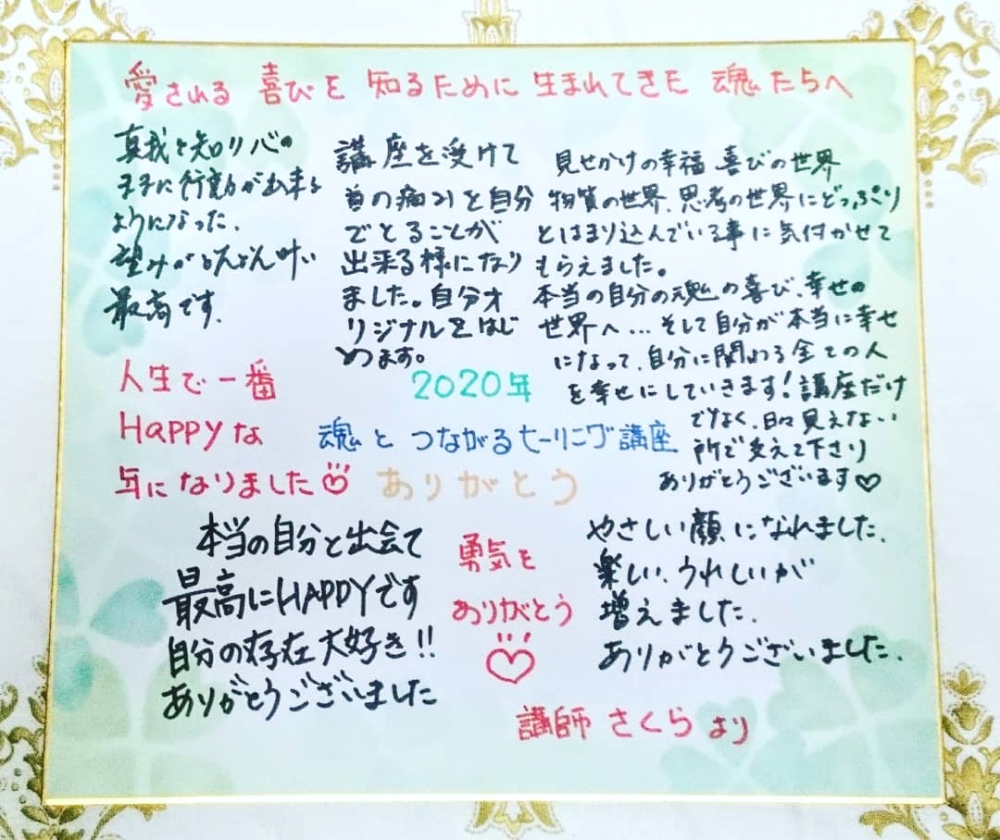 愛される 喜びを 知るために 生まれてきた 魂たちへ
真我を知り心の
ままに行動が出来る
ようになった。
望みがどんどん叶い
最高です。
講座を受けて
首の痛みを自分
でとることが
出来る様になり
ました。自分オ
リジナルをはじ
めます。
見せかけの幸福 喜びの世界
物質の世界、思考の世界にどっぷり
とはまり込んでいる事に気付かせて
もらえました。
本当の自分の魂の喜び、幸せの
世界へ…そして自分が本当に幸せ
になって、自分に関わる全ての人
を幸せにしていきます!講座だけ
でなく、日々見えない
所で支えて下さり
ありがとうございます♡
人生で一番
Happyな
年になりました
2020年
魂と つながるヒーリング講座
ありがとう
本当の自分と出会て
最高にHAPPYです
自分の存在大好き!!
ありがとうございました
勇気を
ありがとう
♡
やさしい顔になれました。
楽しい、うれしいが
増えました。
ありがとうございました。
講師 さくら より